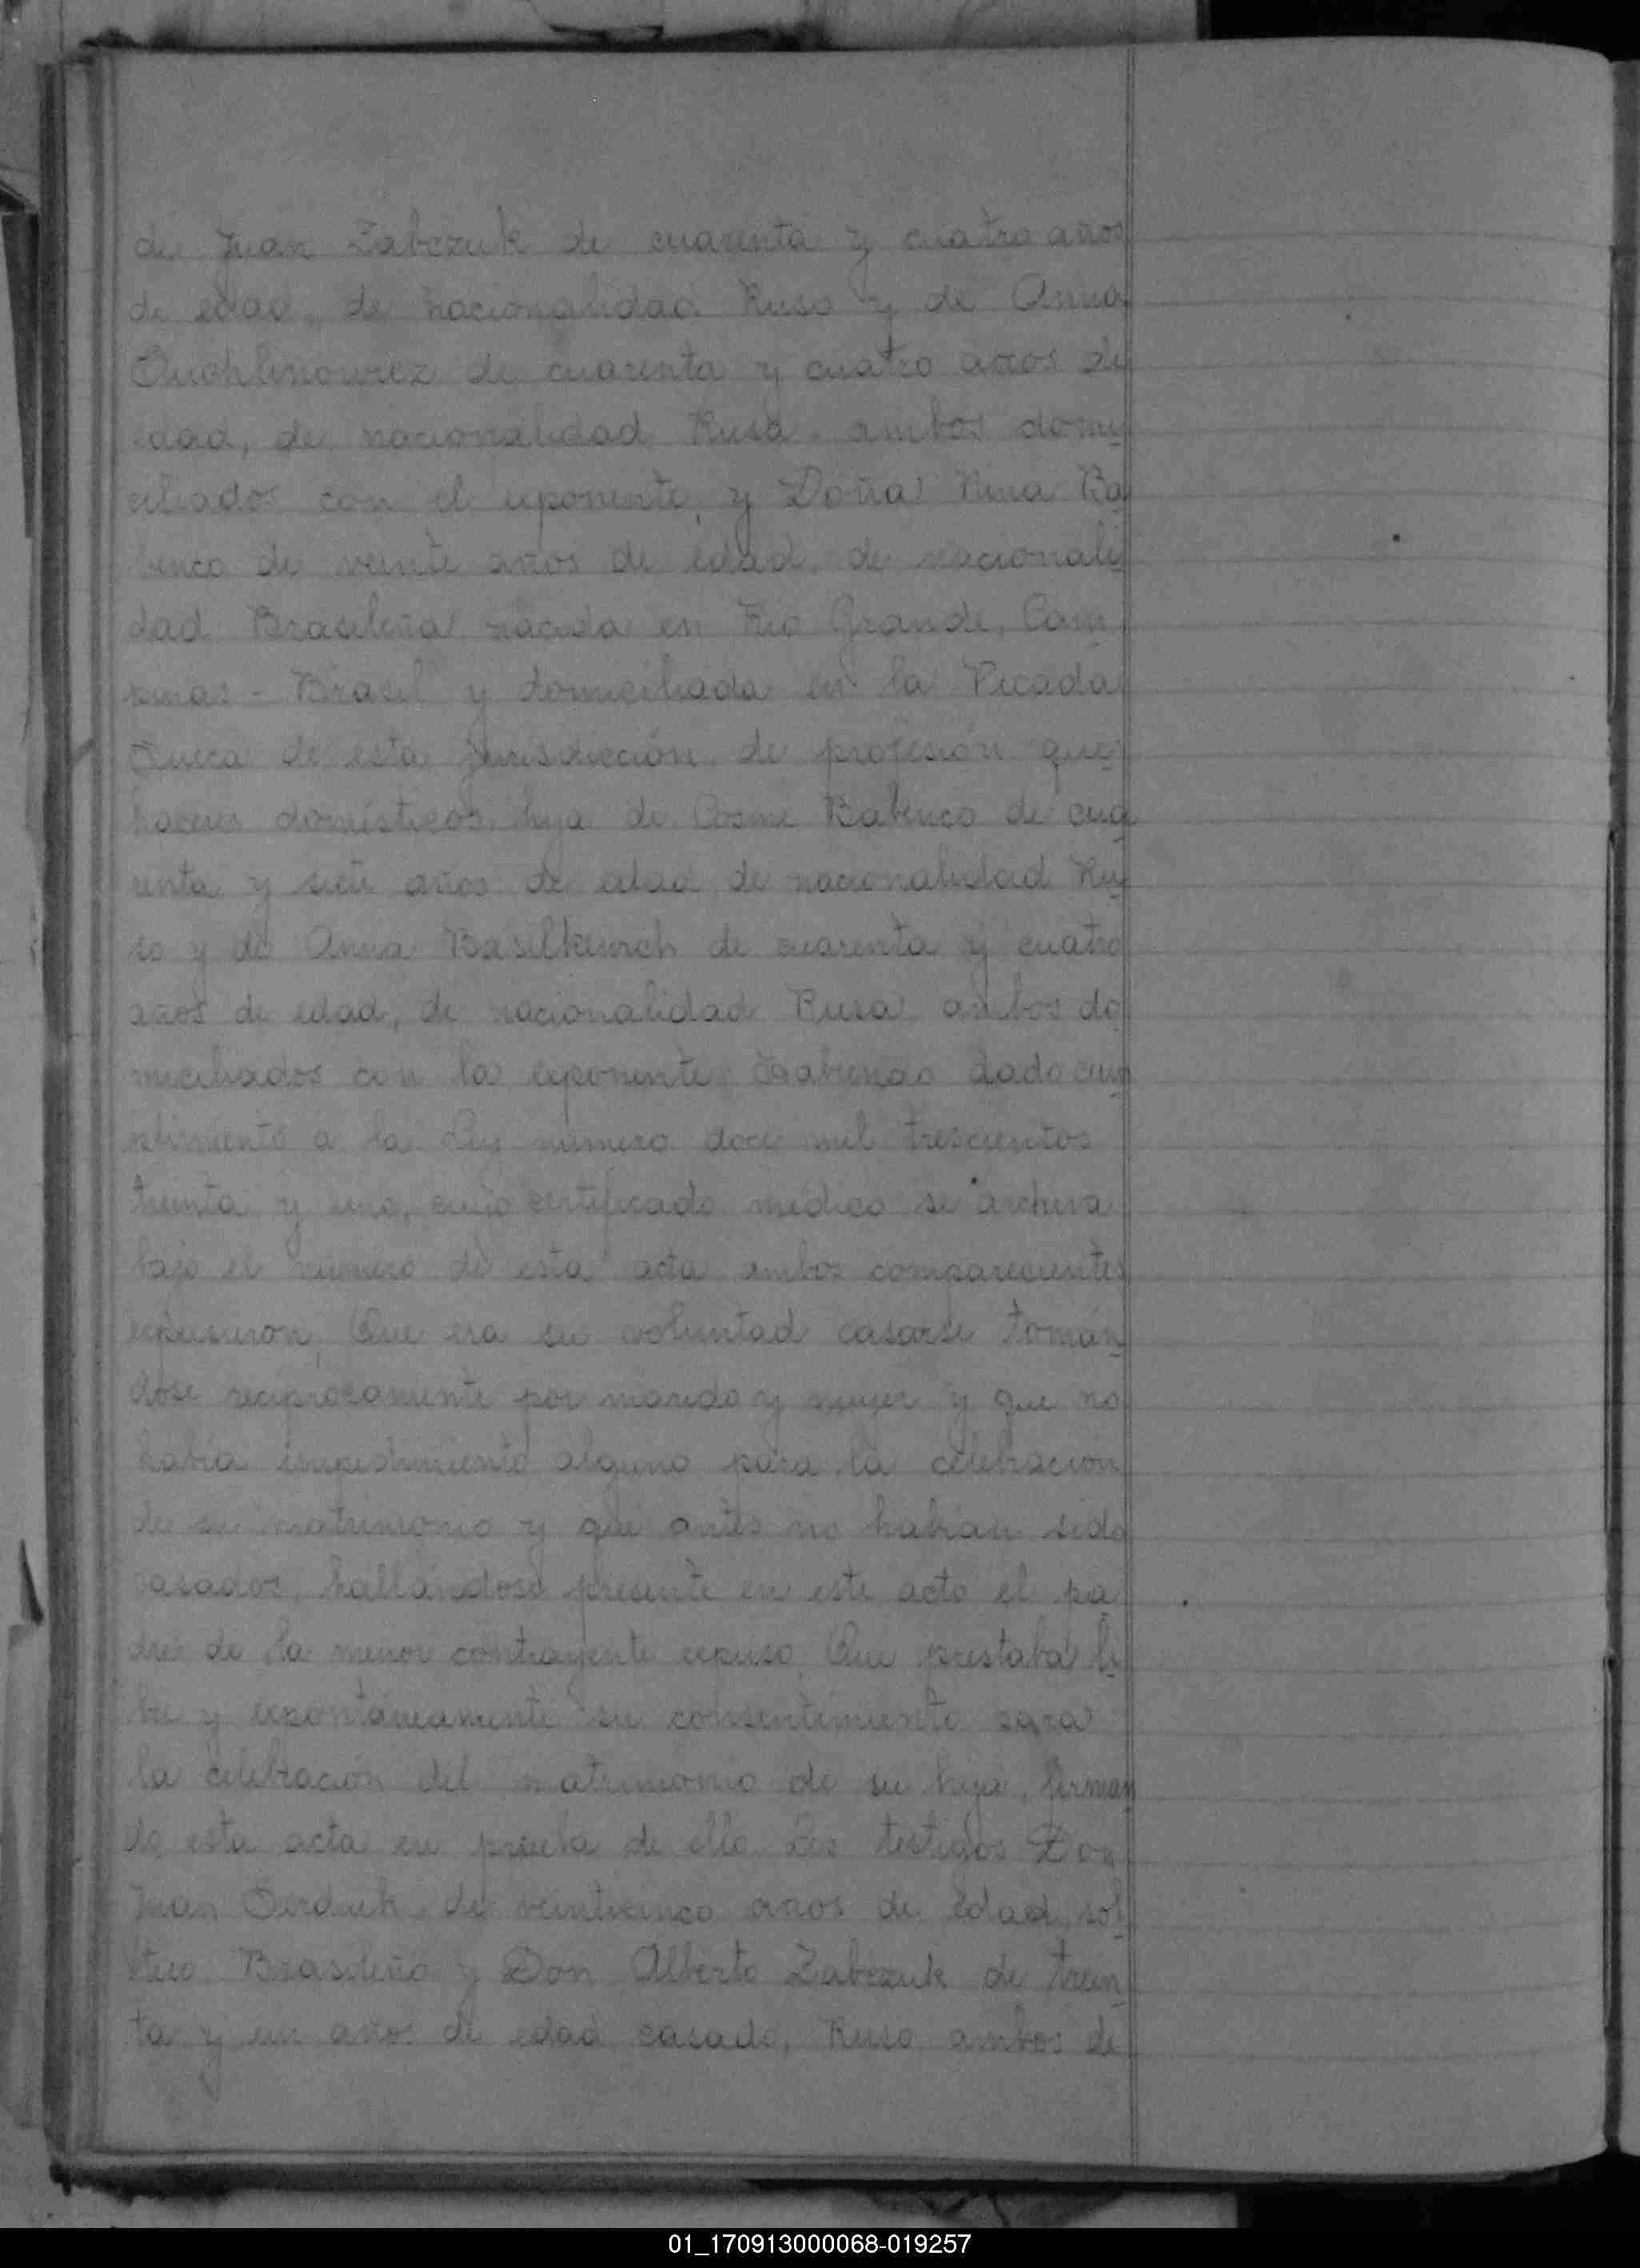 de Juan Zabczuk de cuarenta y cuatro años
de edad, de nacionalidad Ruso y de Anna
de cuarenta y cuatro años de
edad, de nacionalidad Rusa, ambos domi
ciliados con el exponente, y Doña Nina Ba
benco de veinte años de edad, de nacionali
dad Brasileña, nacida en Rio Grande, Cam
pinas - Brasil y domiciliada en la Picada
Sueca de esta jurisdicción, de profesión que
haceres domésticos, hija de Cosme Babenco de cua
renta y siete años de edad de nacionalidad Ru
so y de Anna de cuarenta y cuatro
años de edad, de nacionalidad Rusa, ambos do
miciliados con la exponente. Habiendo dado cum
plimiento a la Ley número doce mil trescientos
treinta y uno, cuyo certificado médico se archiva
bajo el número de esta acta ambos comparecientes
expusieron, Que era su voluntad casarse tomán
dose reciprocamente por marido y mujer y que no
habia impedimiento alguno para la celebración
de su matrimonio y que antes no habian sido
casados, hallándose presente en este acto el pa
dre de la menor contrayente expuso, Que prestaba li
bre y expontáneamente su consentimiento para
la celebración del matrimonio de su hija, firman
do esta acta en prueba de ello. Los testigos Don
Juan Serdiuk, de veinticinco años de edad, sol
tero Brasileño y Don Alberto Zabczuk de trein
ta y un años de edad, casado, Ruso ambos de
01_170913000068-019257